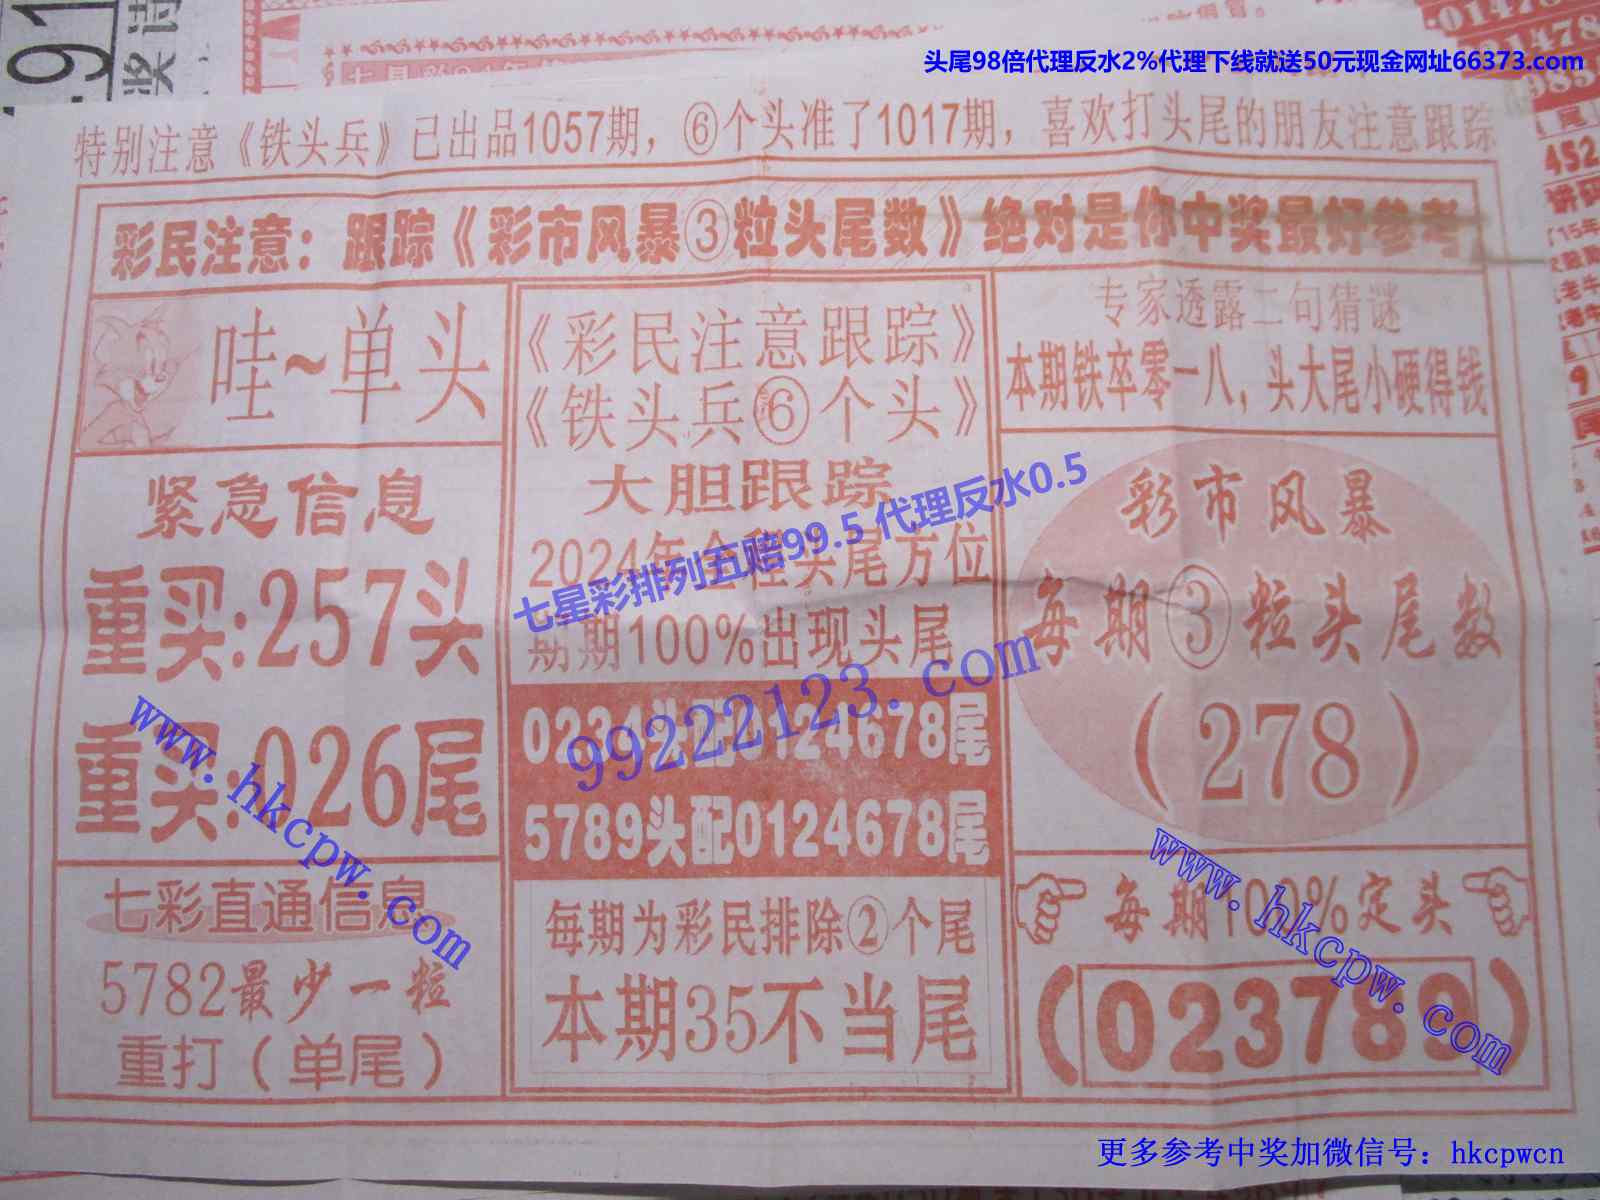 头尾98倍代理反水2%代理下线就送50元现金网址66373.com
特别注意《铁头兵》已出品1057期，⑥个头准了1017期，喜欢打头尾的朋友注意跟踪
彩民注意：跟踪《彩市风暴③粒头尾数》绝对是你中奖最好参考
哇~单头
紧急信息
重买:257头
重买:026尾
七彩直通信息
5782最少一粒
重打（单尾）
《彩民注意跟踪》
《铁头兵⑥个头》
大胆跟踪
2024年全程头尾方位
期期100%出现头尾
0234头配0124678尾
5789头配0124678尾
每期为彩民排除②个尾
本期35不当尾
专家透露二句猜谜
本期铁卒零一八，头大尾小硬得钱
彩市风暴
每期③粒头尾数
（278）
每期100%定头
（023789）
七星彩排列五赔99.5 代理反水0.5
99222123.com
www.hkcpw.com
www.hkcpw.com
更多参考中奖加微信号：hkcpwcn